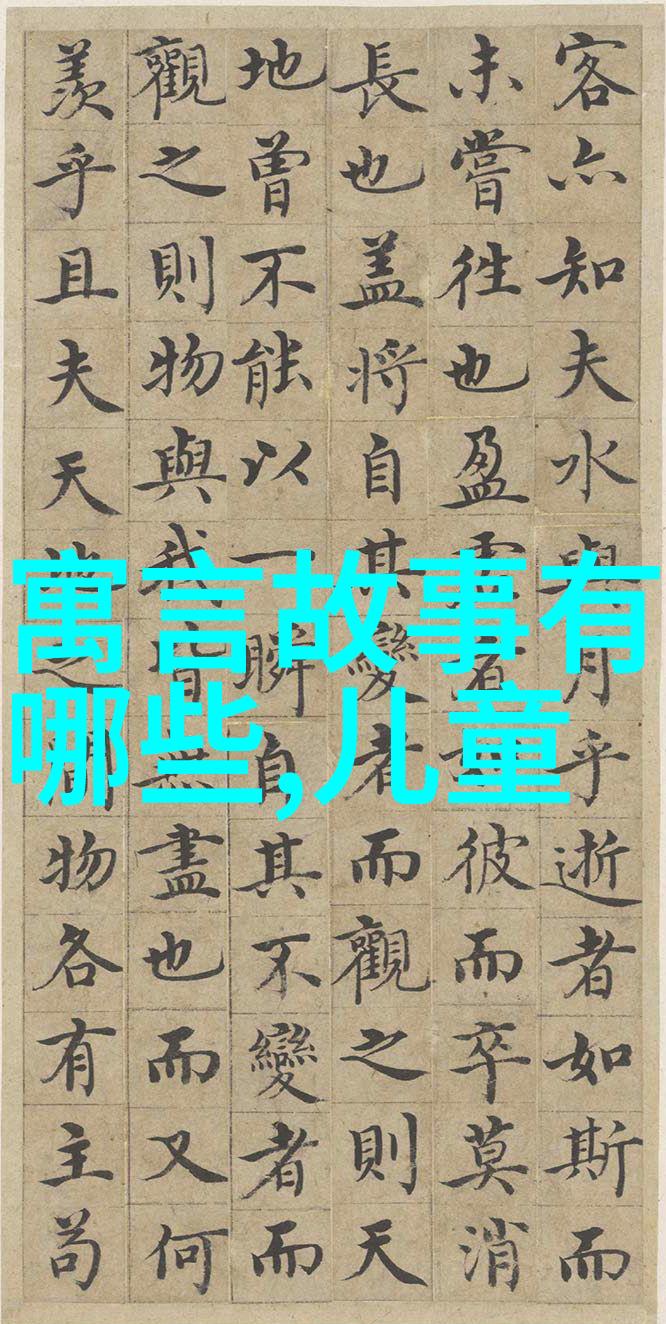 寓言故事有
哪些,儿童
客亦知夫水與月乎逝者如斯而
未嘗往也盈虛者彼而卒莫消
長也盖將自其變者而觀之則天
地曾不能以一瞬自其不變者而
觀之則物與我皆無盡也而又何
羨乎且夫天地之間物各有主苟